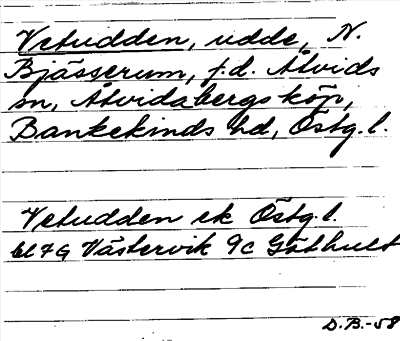 Vetudden, udde, N.
Bjässerum, f.d. Åtvids
sn, Åtvidabergs köp,
Bankekinds hd, Östg. l.
Vetudden ek Östg. l.
bl 7 G Västervik 9c Göthult
D.B.-58